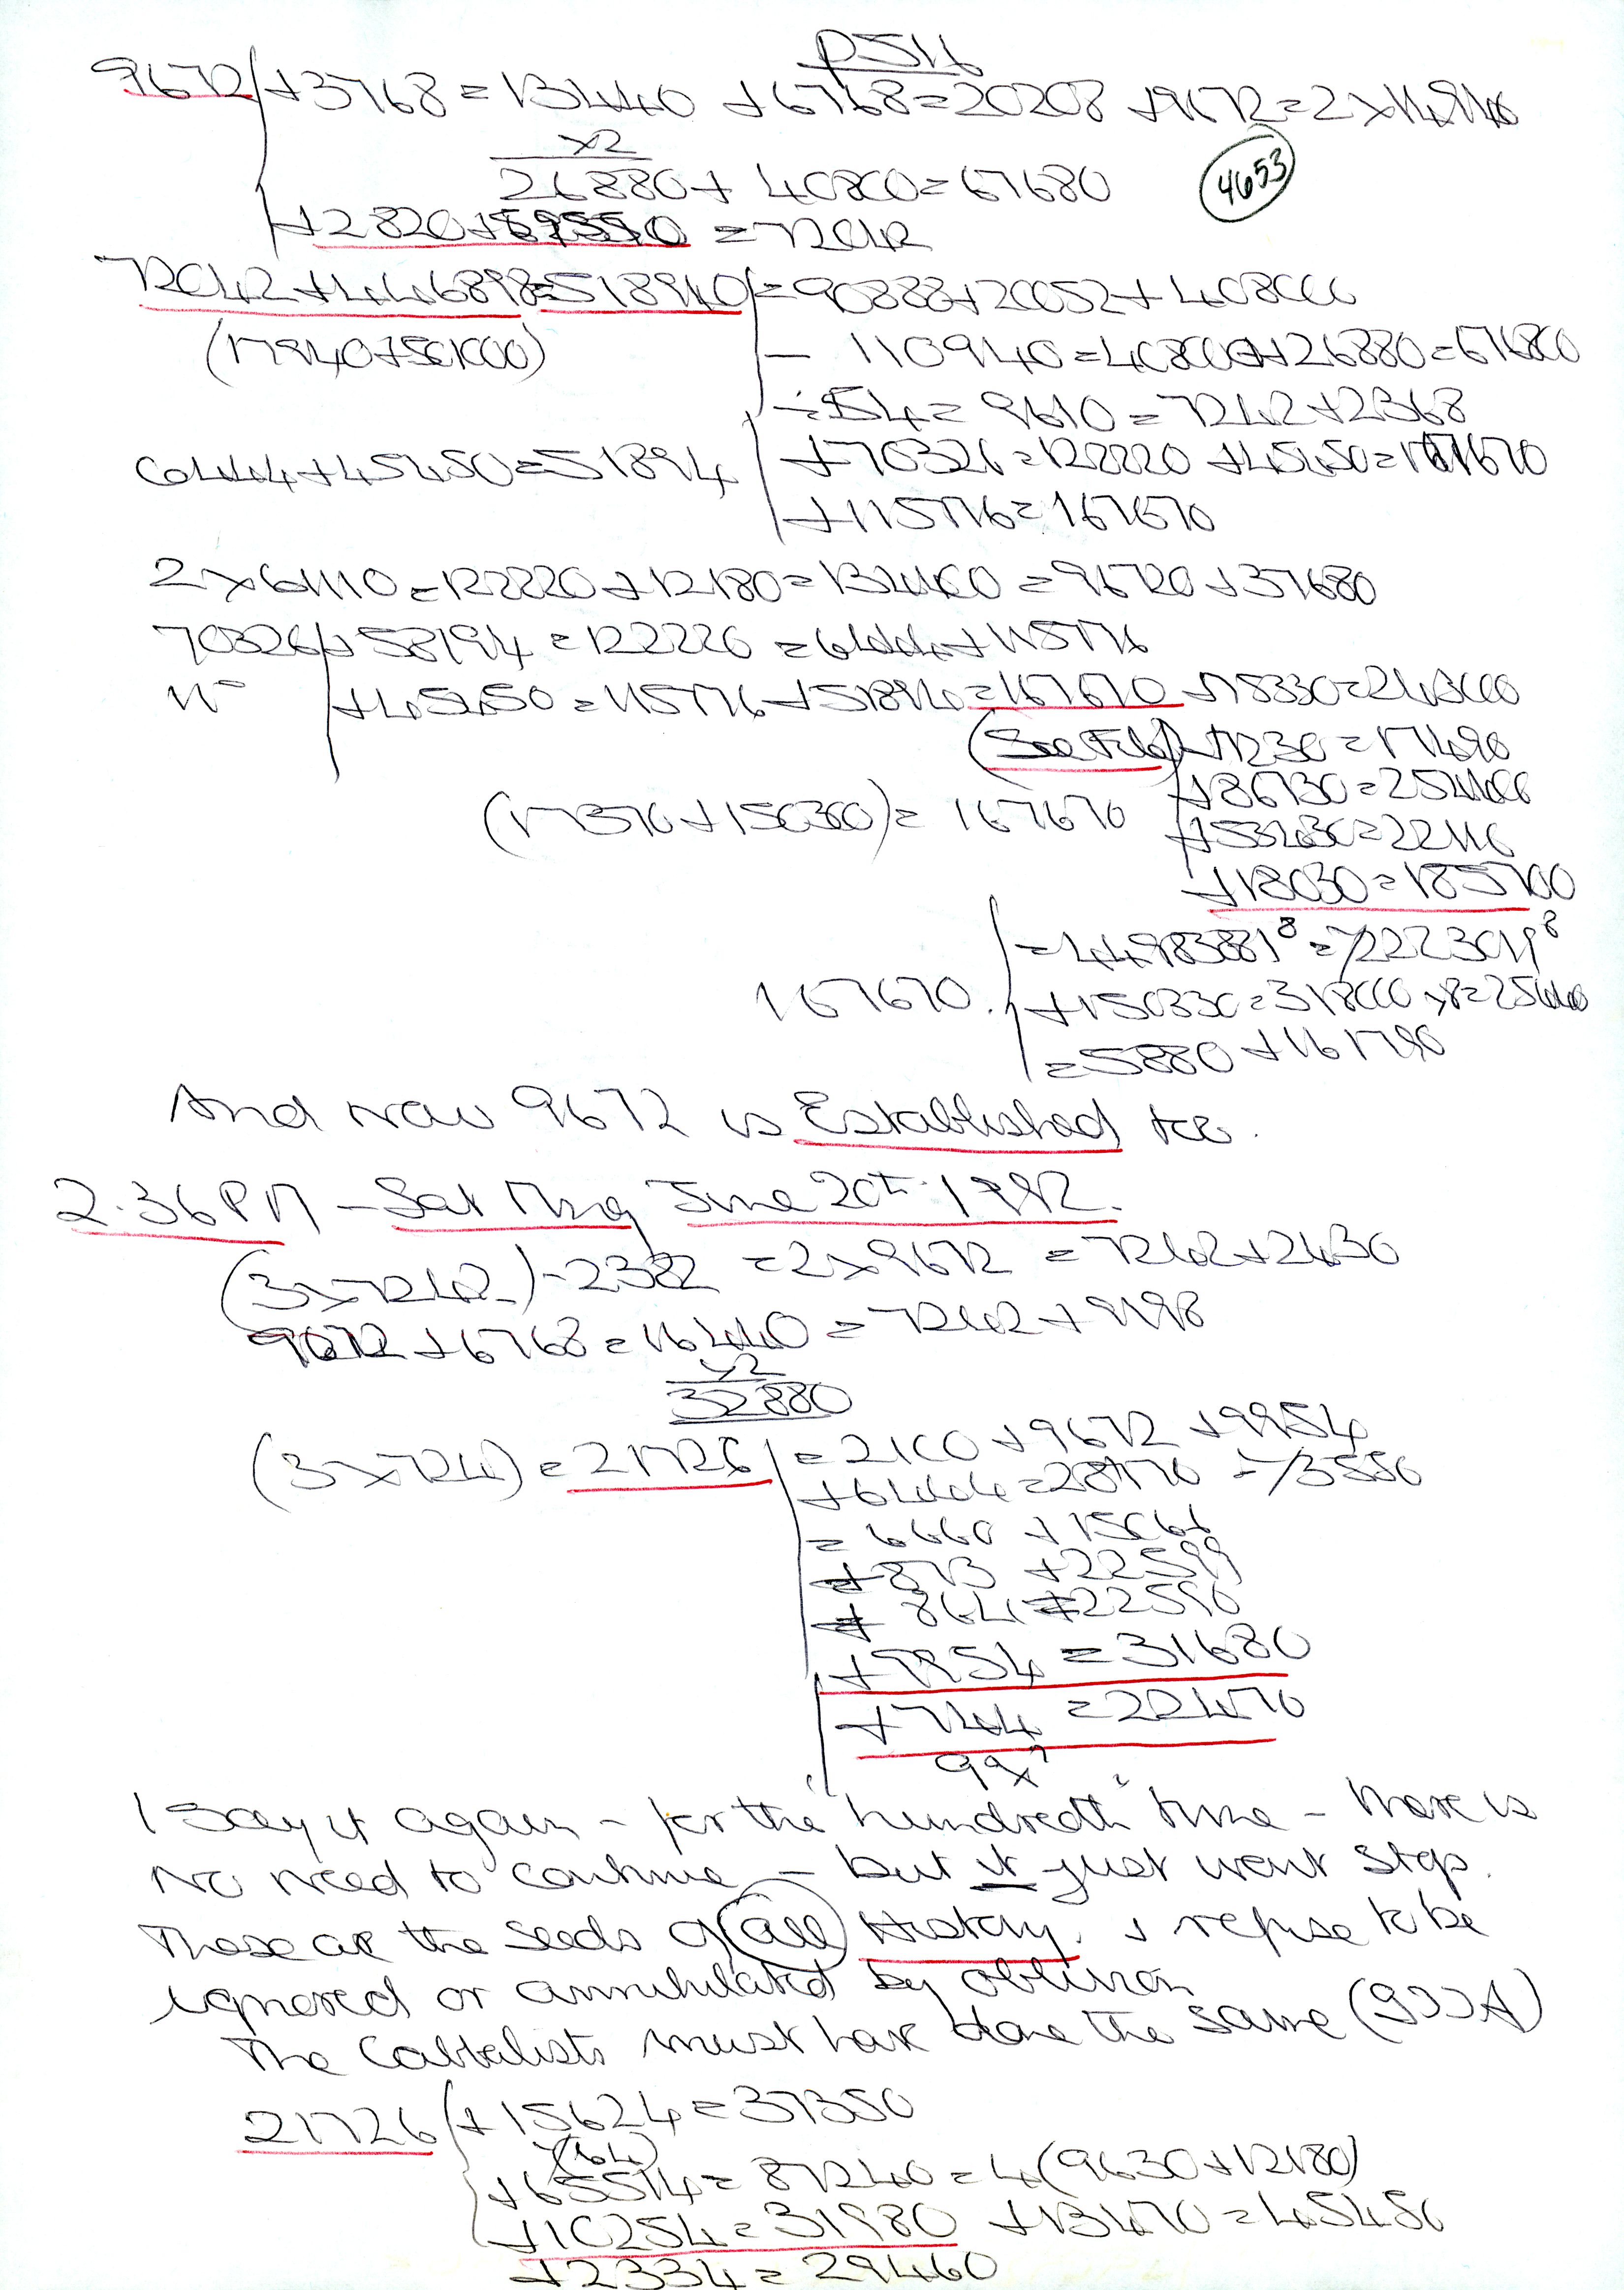 P511
9672 +3768 = 13440 +6768 = 20208 +9672 = 2 × 14940
×2
26880 + 40800 = 67680
4653
+2820 + = 72042
72042 + 446898 = 518940 = 90888 + 20052 + 408000
(17940 + 501000) - 110940 = 408000 + 26880 = 67680
÷ 54 = 9610 = 7242 + 2368
6444 + 45450 = 51894 +70326 = 122220 + 45450 = 167670
+115776 = 167670
2 × 61110 = 122220 + 12180 = 134400 = 96720 + 37680
70326 + 58194 = 122220 = 6444 + 115776
+45450 = 115776 + 51894 = 167670 + 78330 = 246000
+7230 = 174890
(17370 + 150300) = 167670 +86730 = 254400
+53430 = 221100
+18030 = 185700
= 449838819⁸ = 7222301⁸
167670 +150330 = 318000 × 8 = 25440
= 5880 + 161790
And now 9672 is Established too.
2.36 PM - Sat Mng June 20th 1992.
(3 × 7242) - 2382 = 2 × 9672 = 7242 + 2430
9672 + 6768 = 16440 = 7242 + 9198
×2
32880
(3 × 724) = 21726 = 2100 + 9672 + 9954
+6444 = 28170 - 73550
= 6660 + 15066
+ 873 + 22599
+ 864 = 22590
+9954 = 31680
+744 = 22470
I say it again - for the "hundredth" time - there is
no need to continue - but it just wont stop.
These are the seeds of all History. I refuse to be
ignored or annihilated by oblivion
The Cabbalists must have done the same
21726 +15624 = 37350
(64)
+65514 = 87240 = 4(9630 + 12180)
+10254 = 31980 + 13470 = 45450
+2334 = 29460